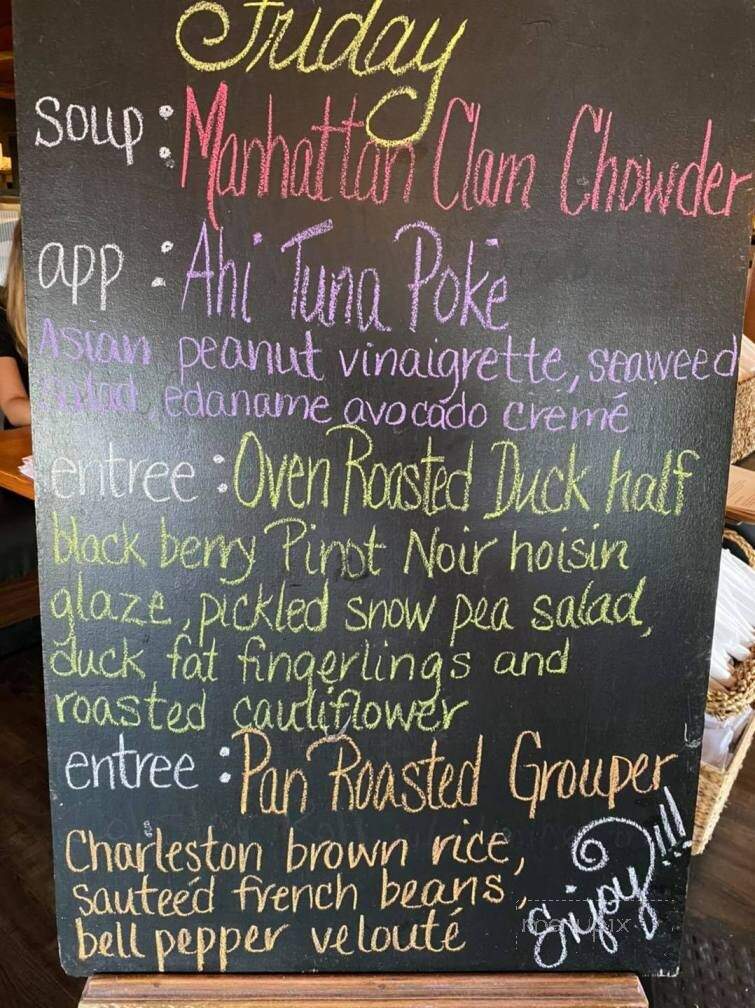 Friday
soup: Manhattan Clam Chowder
app: Ahi Tuna Poké
Asian peanut vinaigrette, seaweed
salad, edaname avocado cremé
entree: Oven Roasted Duck half
black berry Pinot Noir hoisin
glaze, pickled snow pea salad,
duck fat fingerlings and
roasted cauliflower
entree: Pan Roasted Grouper
Charleston brown rice,
sauteéd french beans,
bell pepper velouté
Enjoy!!!
menupix